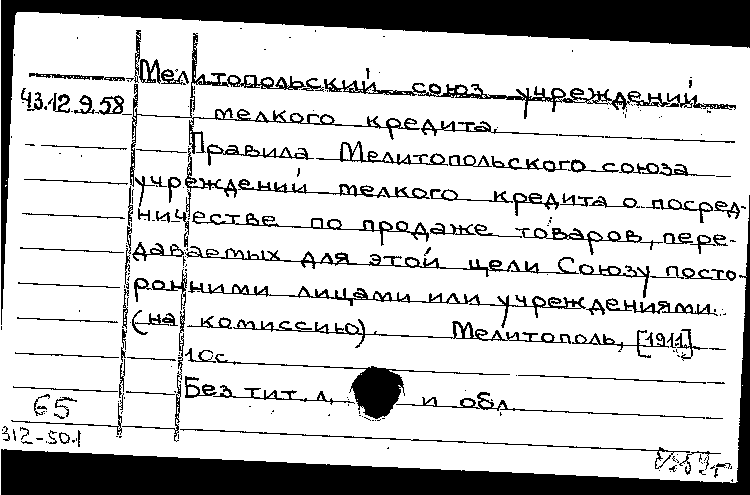 Мелитопольский союз учреждений
43.12.9.58 мелкого кредита.
Правила Мелитопольского союза
учреждений мелкого кредита о посред-
ничестве по продаже товаров, пере-
даваемых для этой цели Союзу посто-
ронними лицами или учреждениями.
(на комиссию). Мелитополь, [1911].
10с.
Без тит. л. и обл.
65
312-501